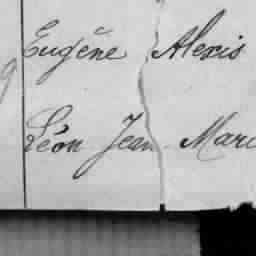 Eugène Alexis
Léon Jean Marc